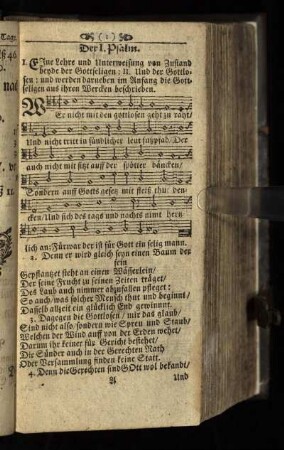 ( 1 )
Der I. Psalm.
I. Eine Lehre und Unterweisung von Zustand
beyde der Gottseligen: II. Und der Gottlo-
sen: und werden darneben im Anfang die Gott-
seligen aus ihren Wercken beschrieben.
Wer nicht mit den gottlosen geht zu raht/
Und nicht tritt in sündlicher leut fußpfad/Der
auch nicht mit sitzt auff der spötter bäncken/
Sondern auff Gotts gesetz mit fleiß thut den-
cken/Und sich des tags und nachts nimt hertz-
lich an: Fürwar der ist für Gott ein selig mann.
2. Denn er wird gleich seyn einen Baum der
fein
Gepflantzet steht an einen Wässerlein/
Der seine Frucht zu seinen Zeiten träget/
Des laub auch nimmer abzufallen pfleget:
So auch/was solcher Mensch thut und beginnt/
Dasselb allzeit ein glücklich End gewinnt.
3. Dagegen die Gottlosen/mir das glaub/
Sind nicht also/sondern wie Spreu und Staub/
Welchen der Wind auff von der Erden wehet/
Darum ihr keiner für Gericht bestehet/
Die Sünder auch in der Gerechten Rath
Oder Versammlung finden keine Statt.
4. Denn die Gerechten sind GOtt wol bekandt/
A
Und